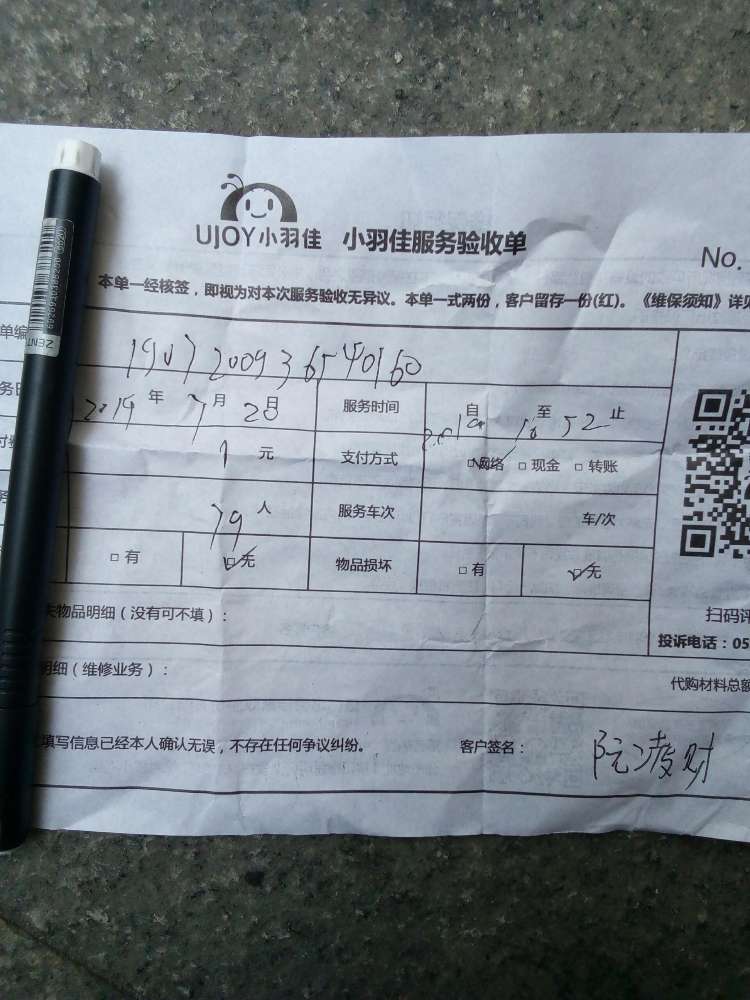 UJOY小羽佳 小羽佳服务验收单
No.
本单一经核签，即视为对本次服务验收无异议。本单一式两份，客户留存一份(红)。《维保须知》详见
单编
1907200936540160
2019年7月20日 服务时间 自 至 52 止
元 支付方式 □网络 □现金 □转账
人 服务车次 车/次
□有 □无 物品损坏 □有 □无
失物品明细（没有可不填）：
扫码评
投诉电话：05
明细（维修业务）：
代购材料总额
填写信息已经本人确认无误，不存在任何争议纠纷。 客户签名：
ZENT